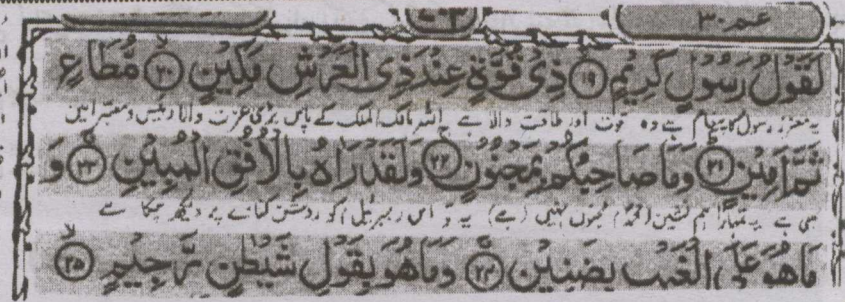 عم ٣٠
لَقَوْلُ رَسُوْلٍ كَرِيْمٍ ۙ ١٩ ذِيْ قُوَّةٍ عِنْدَ ذِي الْعَرْشِ مَكِيْنٍ ۙ ٢٠ مُّطَاعٍ
یہ معزز رسول کا پیغام ہے وہ قوت اور طاقت والا ہے اللہ مالک الملک کے پاس بڑی عزت والا رئیس و معتبر امین
ثَمَّ اَمِيْنٍ ٢١ وَمَا صَاحِبُكُمْ بِمَجْنُوْنٍ ٢٢ وَلَقَدْ رَاٰهُ بِالْاُفُقِ الْمُبِيْنِ ٢٣ وَ
بھی ہے یہ تمہارا ہم نشین (محمد) مجنون نہیں (ہے) یہ تو اس (جبریل) کو روشن کنارے پر دیکھ چکا ہے
مَا هُوَ عَلَى الْغَيْبِ بِضَنِيْنٍ ٢٤ وَمَا هُوَ بِقَوْلِ شَيْطٰنٍ رَّجِيْمٍ ۙ ٢٥